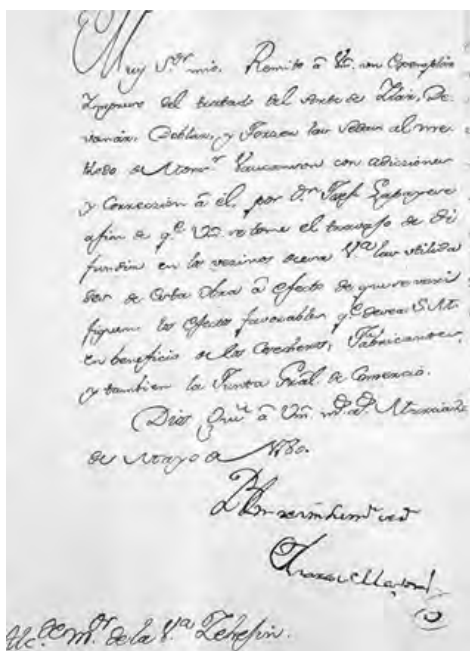 Muy S.or mio. Remito à Vm. un Exemplar
Impreso del tratado del Arte de Ilar, De-
vanar, Doblar, y Torzer las Sedas al me-
thodo de Monsr. Vaucanson con adicciones
y Correccion à èl, por Dn. Joseph Lapayese
afin de qe. Vm. se tome el travajo de di
fundir en los vezinos de esa Va. las utilida
des de esta Obra à efecto de que se veri
fiquen los efectos favorables qe. desea S.M.
en beneficio de los Cosecheros, Fabricantes,
y tambien la Junta Gral. de Comercio.
Dios Gue. à Vm. ms. as. Murcia
de Mayo de 1780.
B
mor. de la Va. Zehegin.